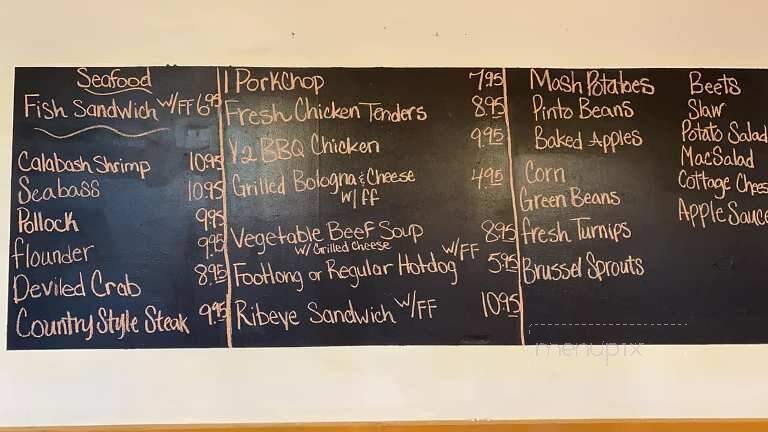 Seafood
Fish Sandwich w/FF 6.95
Calabash Shrimp 10.95
Seabass 10.95
Pollock 9.95
flounder 9.95
Deviled Crab 8.95
Country Style Steak 9.95
1 Porkchop 7.95
Fresh Chicken Tenders 8.95
1/2 BBQ Chicken 9.95
Grilled Bologna & Cheese 4.95
w/ff
Vegetable Beef Soup 8.95
w/ Grilled Cheese
Footlong or Regular Hotdog w/FF 5.95
Ribeye Sandwich w/FF 10.95
Mash Potatoes
Pinto Beans
Baked Apples
Corn
Green Beans
fresh Turnips
Brussel Sprouts
Beets
Slaw
Potato Salad
MacSalad
Cottage Chees
Apple Sauce
menupix